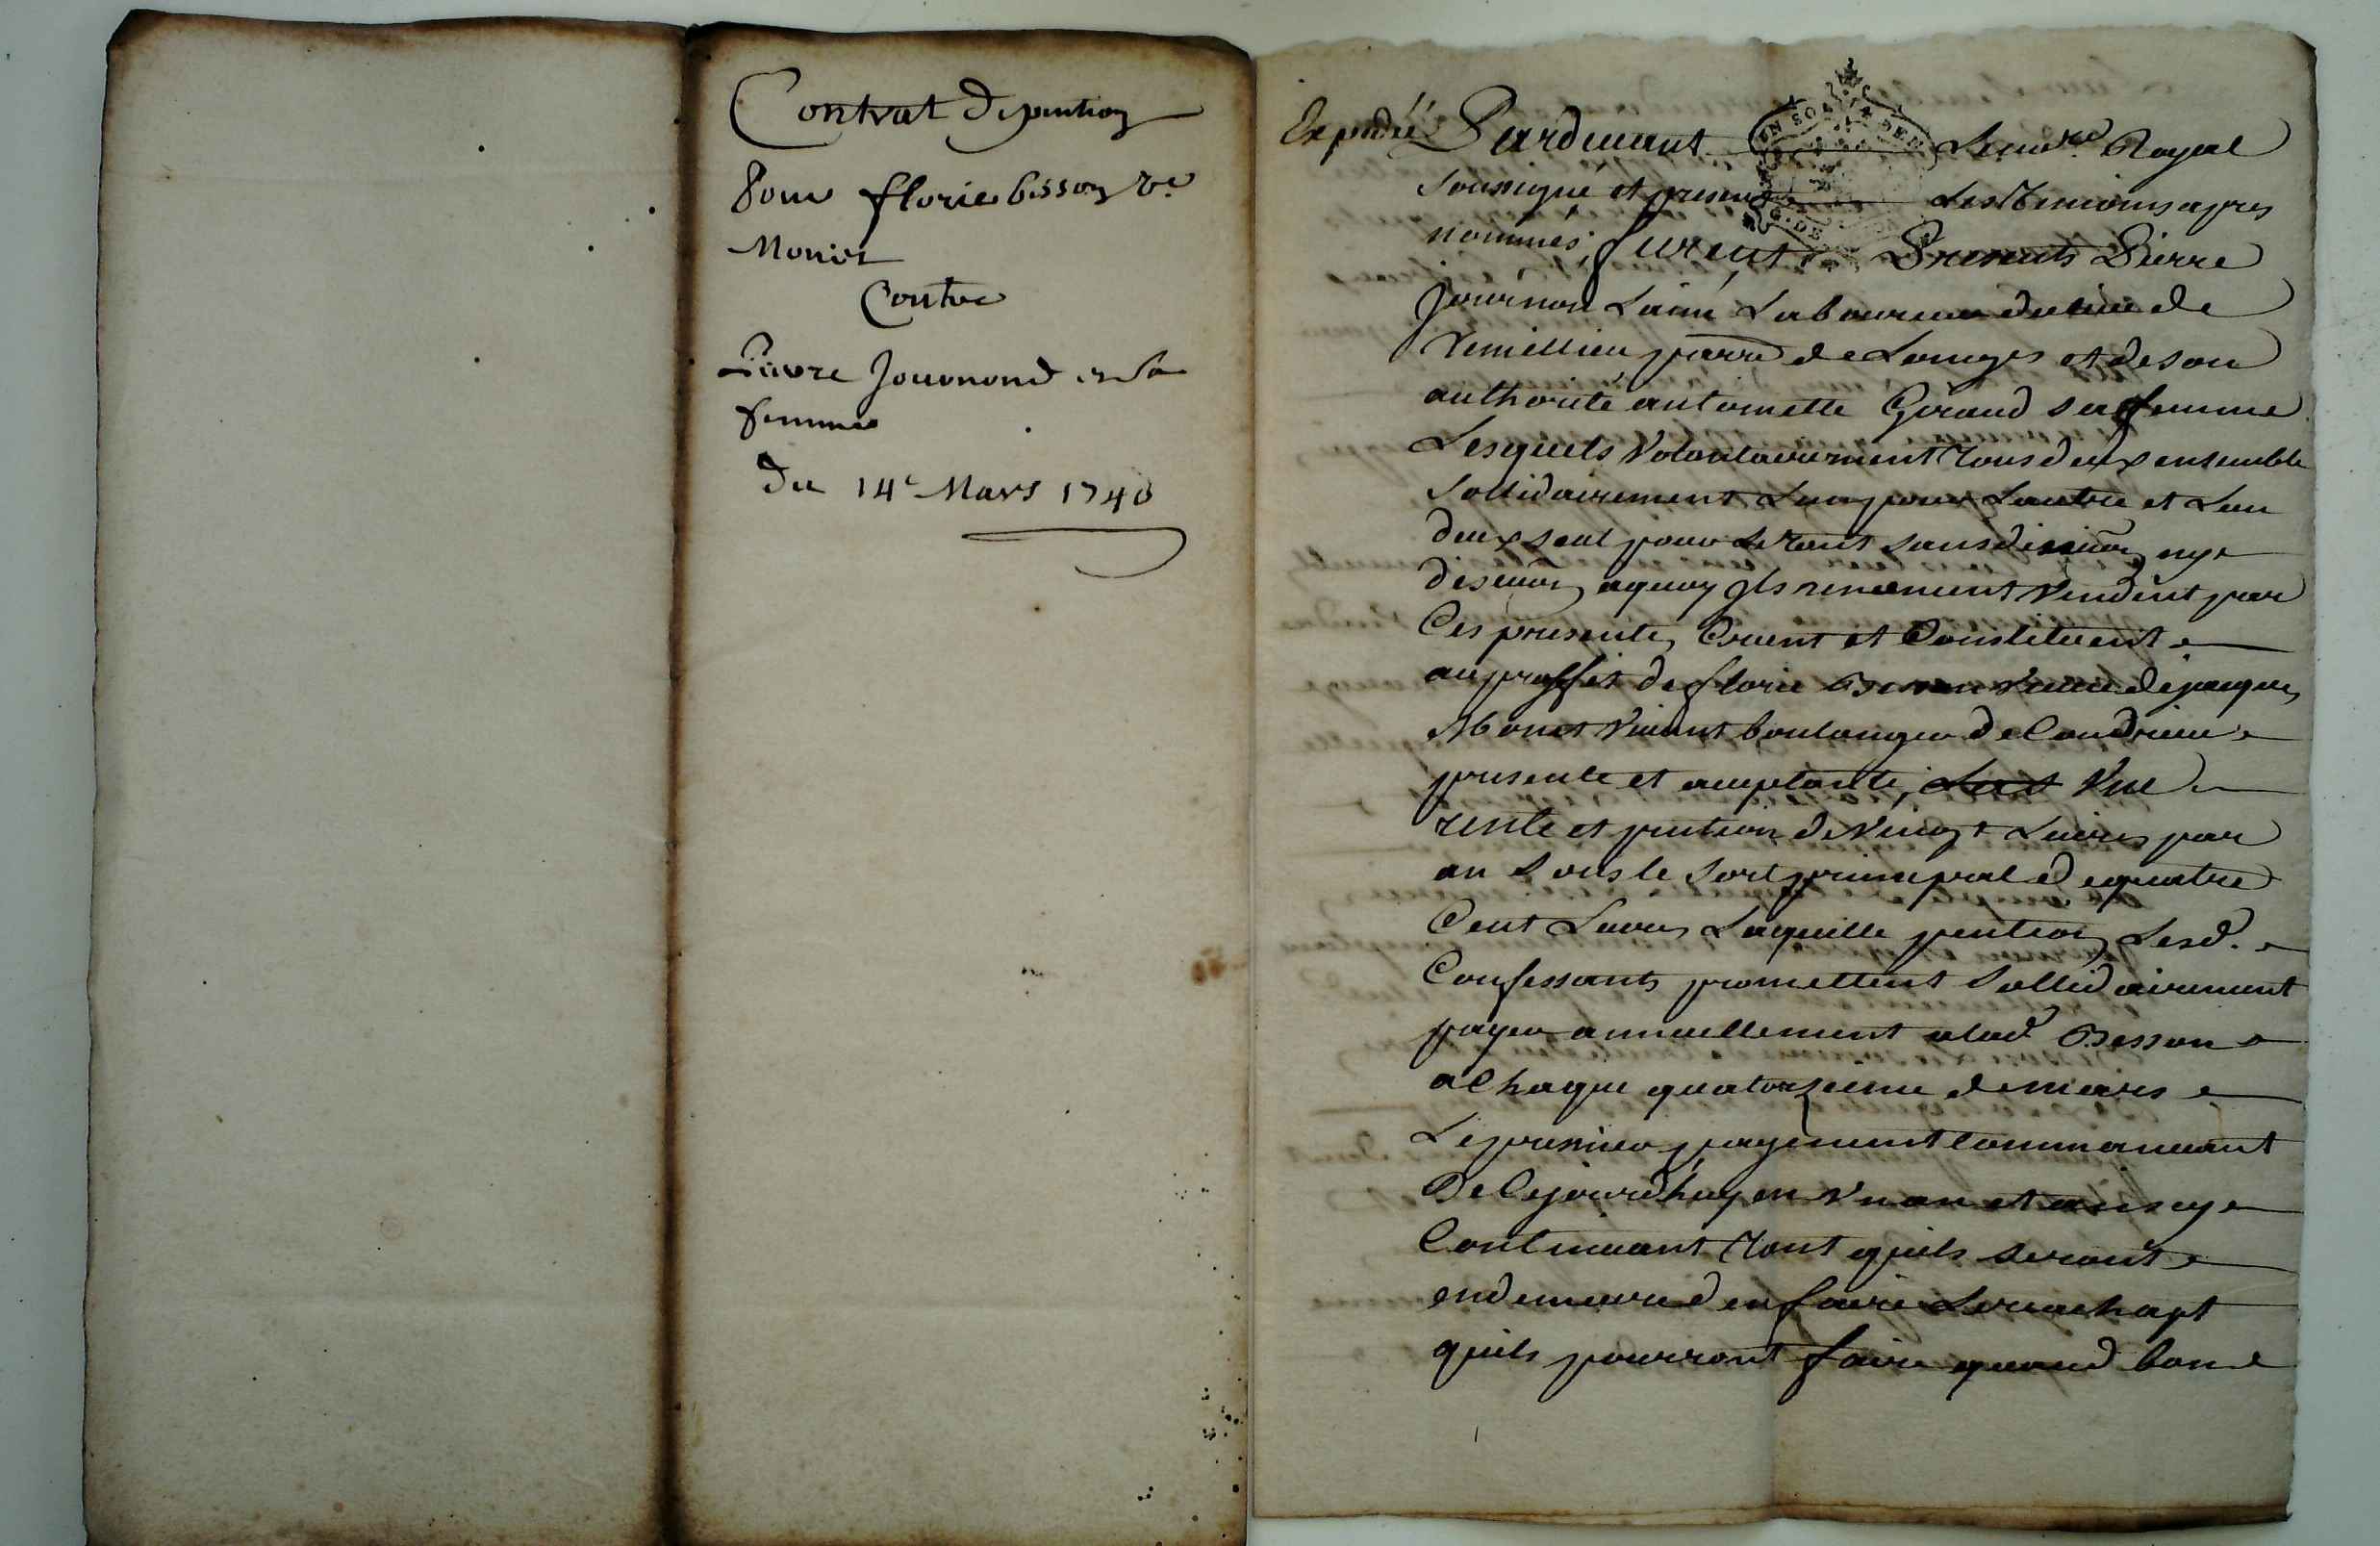 Contrat de pention
Pour florie bisson v.e
Monet
Contre
Pierre Journond et sa
femme
Du 14e Mars 1740
Expedié Pardevant Le no.re Royal
soussigné et presents Les Temoins apres
nommés, furent Presents Pierre
Journon Lainé Laboureur du lieu de
Vemillieu parr.e de Longes et de son
authorité antoinette Giraud sa femme
Lesquels Volontairement Tous deux ensemble
sollidairement Lun pour Lautre et Lun
deux seul pour Le tout sans division ny
discution aquoy Ils renoncent Vendent par
Ces presentes Créent et Constituent
au proffit de florie Besson Veuve de jacques
Monet Vivant boulanger de Condrieu
presente et acceptante, Une
rente et pention de Vingt Livres par
an sous le sort principal de quatre
Cent Livres Laquelle pention Lesd.
Confessants promettent sollidairement
payer annuellement a lad. Besson
a Chaque quatorzieme de mars
Le premier payement Commancant
De Cejourdhuy en Un an et ainsy
Continuant Tant quils seront
en demeure den faire Le rachapt
quils pourront faire quand bon